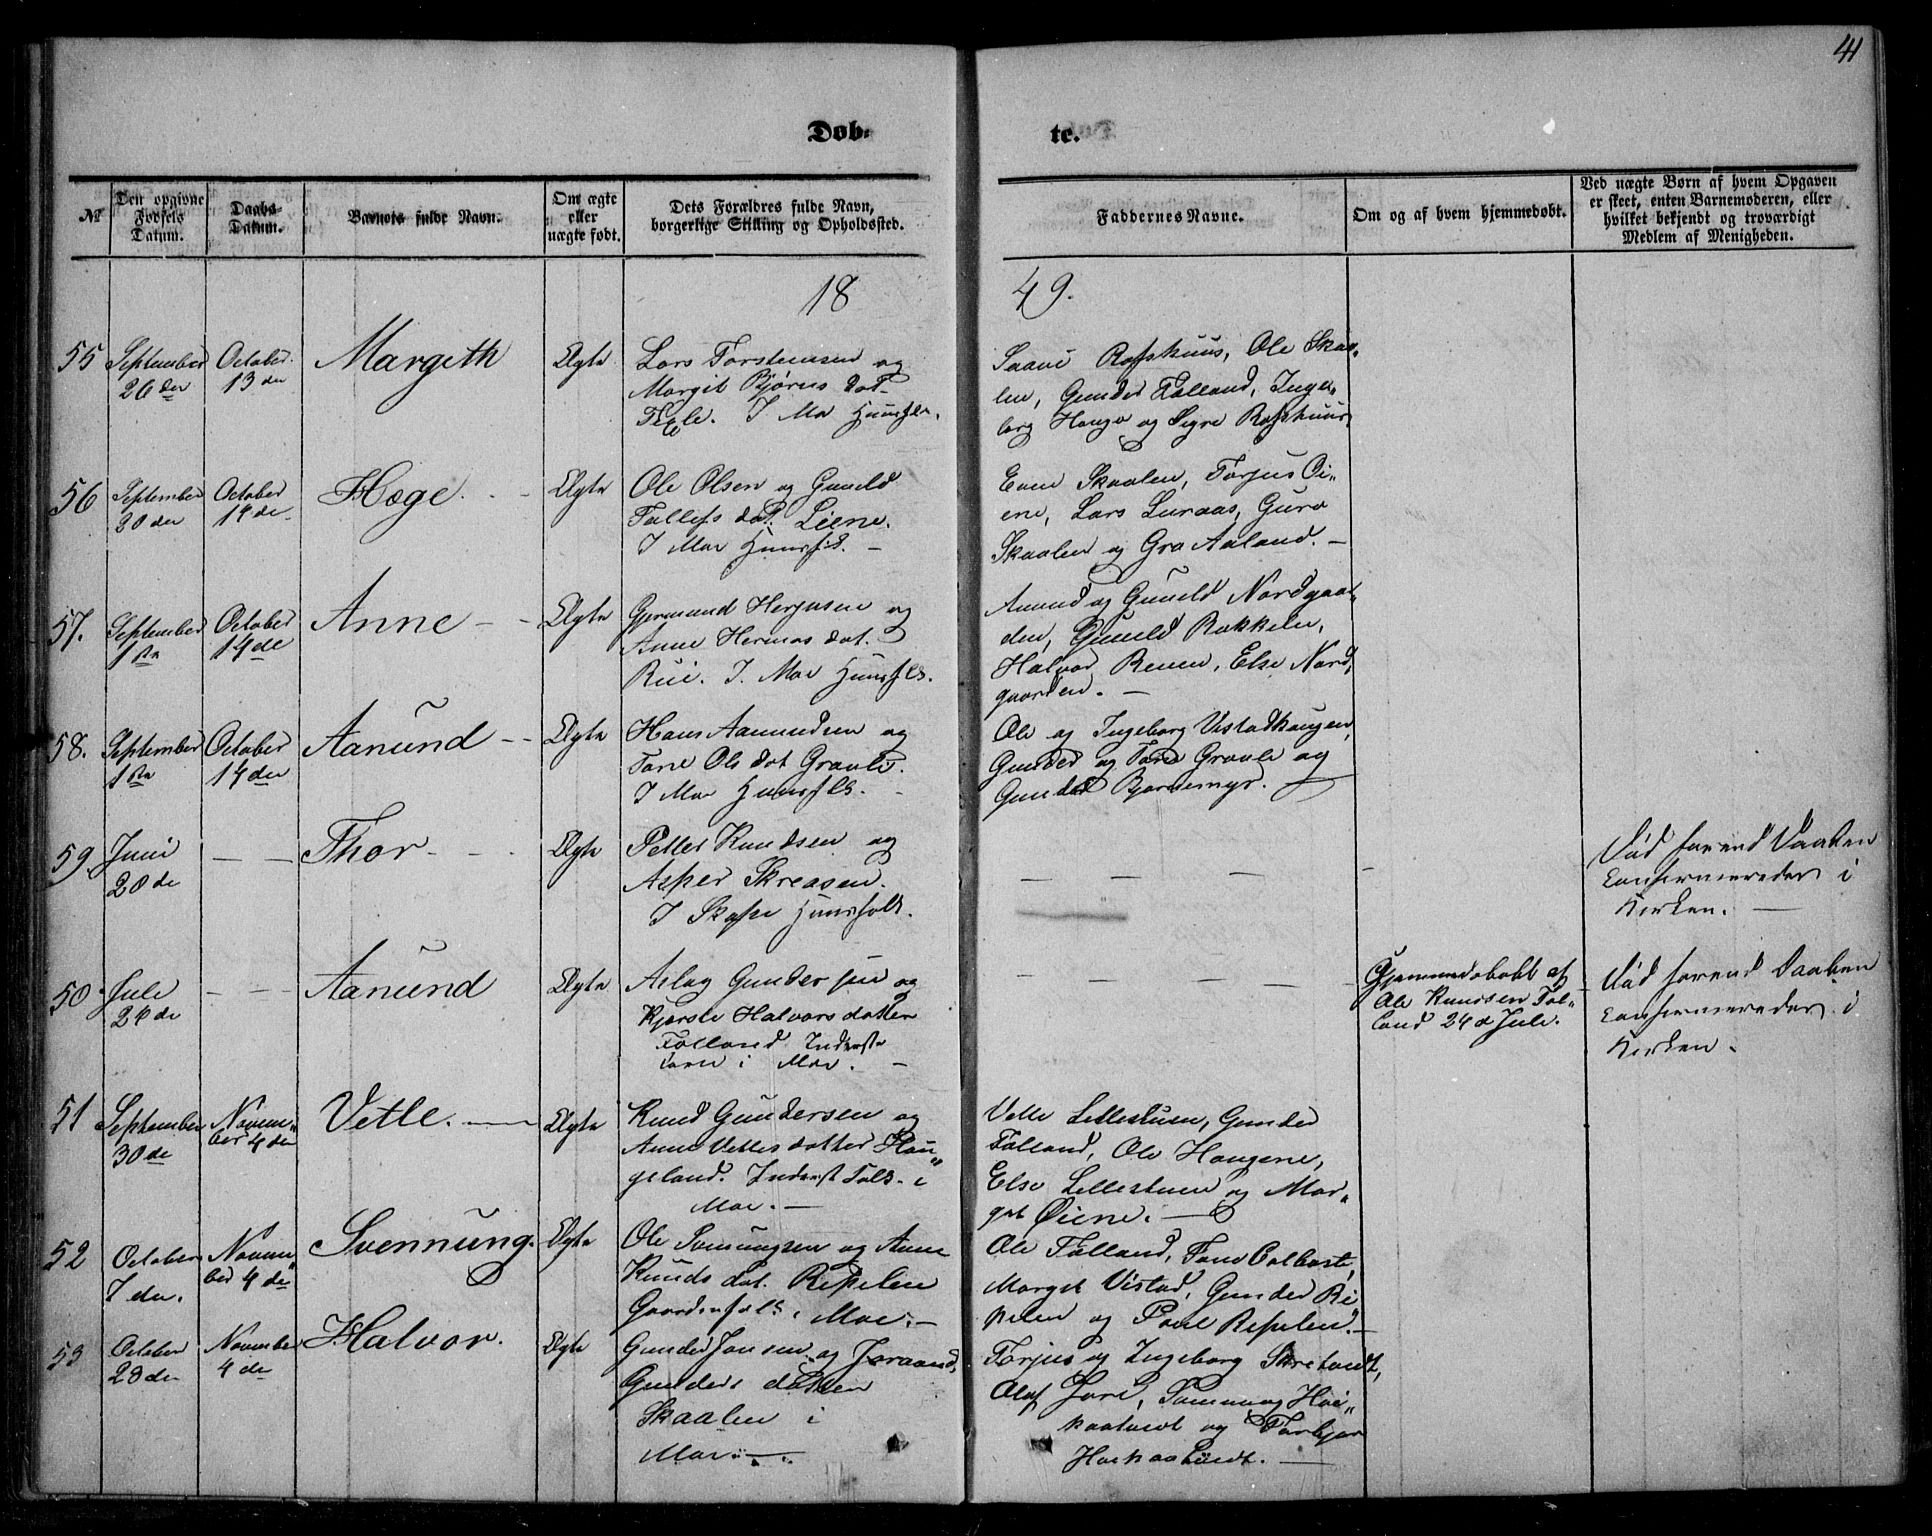 41
Døb-
te.
№
Den opgivne
Fødsels
Datum.
Daabs-
Datum.
Barnets fulde Navn.
Om ægte
eller
uægte født.
Dets Forældres fulde Navn,
borgerlige Stilling og Opholdssted.
Faddernes Navne.
Om og af hvem hjemmedøbt.
Ved uægte Børn af hvem Opgaven
er skeet, enten Barnemoderen, eller
hvilket bekjendt og troværdigt
Medlem af Menigheden.
18
49.
55
September
26 der
October
13 der
Margith
Ægte
Lars Torstensen og
Margit Bjørns dat
I Moe Huusfls.
Saave Rofshuus, Ole Skaa-
len, Gunder Folland, Inge-
borg Haugo og Sigre Rofshuus
56
September
30 der
October
14 de
Hæge
Ægte
Ole Olsen og Gunild
Tallefs dat. Liene.
I Moe Huusfls. -
Even Skaalen, Torjus Øi-
ene, Lars Luraas, Guro
Skaalen og Gro Aaland. -
57.
September
1ste
October
14 de
Anne - -
Ægte
Gjermund Herjusen og
Anne Hermos dat.
Rui. I. Moe Huusfls.
Anund og Gunild Nordgaar-
den, Gunild Rokkeln,
Halvor Reuen, Else Nord-
gaarden. -
58.
September
1ste
October
14 der
Aanund - -
Ægte
Hans Aanundsen og
Tone Ols dat Gravli.
I Moe Huusfls. -
Ole og Ingeborg Vistadhaugen,
Gunder og Tone Gravli og
Gunder Bjørnemyr.
59.
Juni
20 de
- -
Thor - -
Ægte
Petter Knudsen og
Asper Skreaasen.
I Skafse Huusfolk.
- - - -
-
Død forend Daaben
Confirmeredes i
Kirken. -
50.
Juli
24 de
- - -
Aanund
Ægte
Aslag Gunder sen og
Kjersti Halvorsdatter
Folland Inderste
i Moe. -
- - - -
Hjemmedøbt af
Ole Knudsen Fol-
land 24 d Juli.
Død forend Daaben
Confirmeredes i
Kirken.
51
September
30 de
Novem-
ber 4 de
Vetle. -
Ægte
Knud Gundersen og
Anne Vetlesdatter Hau-
geland. Inderst Folk i
Moe. -
Vetle Lillestuen, Gunder
Folland, Ole Haugene,
Else Lillestuen og Mar-
git Øiene. -
52
October
7 den.
Novem-
ber 4 de
Svennung.
Ægte
Ole Svenungsen og Anne
Knuds dat. Repelen
Gaardenfolk i Moe. -
Ole Folland, Tone
Margit Vistad, Gunder Ri-
pelen og Poul Repelen. -
53
October
28 de
Novembe
4 de
Halvor.
Ægte
Gunder Jonsen og Joraand
Gunders datter
Skaalen i
Moe. -
Torjus og Ingeborg
Olaf Jore, Svennung Høi-
kaatvedt og Torbjør